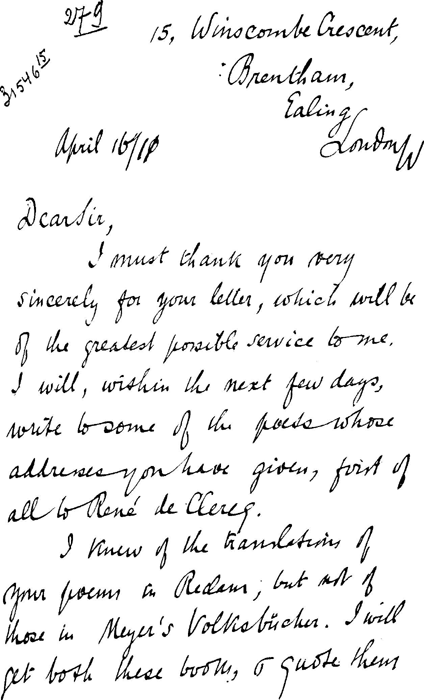 279
3154615
15, Winscombe Crescent,
Brentham,
Ealing
London W
April 16/10
Dear Sir,
I must thank you very
sincerely for your letter, which will be
of the greatest possible service to me.
I will, within the next few days,
write to some of the poets whose
addresses you have given, first of
all to René de Clercq.
I knew of the translations of
your poems in Reclam, but not of
those in Meyer's Volksbücher. I will
get both these books, & quote them